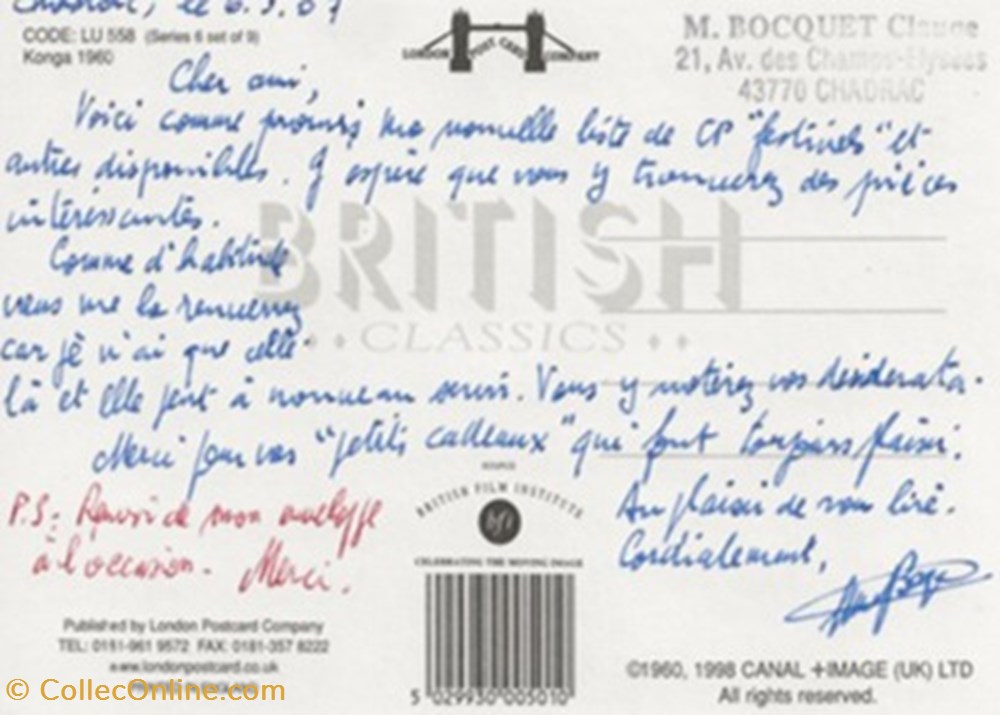 Chadrac, le 6.9.07
CODE: LU 558 (Series 6 set of 9)
Konga 1960
LONDON POST CARD COMPANY
M. BOCQUET Claude
21, Av. des Champs-Elysées
43770 CHADRAC
Cher ami,
Voici comme promis ma nouvelle liste de CP "festivels" et
autres disponibles. J'espère que vous y trouverez des pièces
intéréssantes.
Comme d'habitude
vous me la renverrez
car jè n'ai que celle
là et elle peut à nouveau servir. Vous y noterez vos désiderata.
Merci pour vos "petits cadeaux" qui font toujours plaisir.
BRITISH
CLASSICS
P.S: Renvoi de mon enveloppe
à l'occasion. Merci.
SOURCE
BRITISH FILM INSTITUTE
bfi
CELEBRATING THE MOVING IMAGE
Au plaisir de vous lire.
Cordialement,
Published by London Postcard Company
TEL: 0181-961 9572 FAX: 0181-357 8222
www.londonpostcard.co.uk
5 029930 005010
©1960, 1998 CANAL +IMAGE (UK) LTD
All rights reserved.
© CollecOnline.com